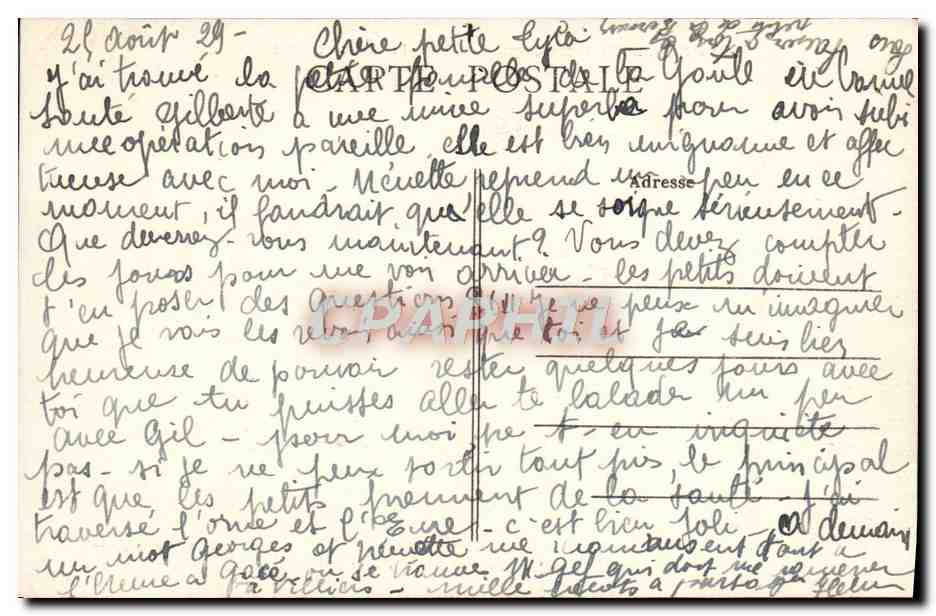 25 Août 29 - Chère petite Lyla
CARTE POSTALE
J'ai trouvé la petite famille de la Goule en bonne
santé Gilberte a une mine superbe pour avoir subi
une opération pareille elle est bien mignonne et affec
tueuse avec moi - Nénette reprend un peu en ce
Adresse
moment, il faudrait qu'elle se soigne sérieusement -
Que devenez-vous maintenant ? Vous devez compter
les jours pour me voir arriver - les petits doivent
t'en poser des questions, je ne peux m'imaginer
CPAPHIL
que je vais les revoir, ainsi que toi et je suis bien
heureuse de pouvoir rester quelques jours avec
toi que tu puisses aller te balader un peu
avec Gil - pour moi ne t-en inquiète
pas - si je ne peux sortir tant pis, le principal
est que les petits prennent de la santé - J'ai
traversé l'Orne et l'Eure - c'est bien joli à demain
un mot Georges et Nénette me
à Gacé, on se trouve qui doit me ramener
à Villiers - mille